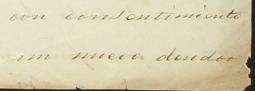 con consentimiento
un nuevo deudor